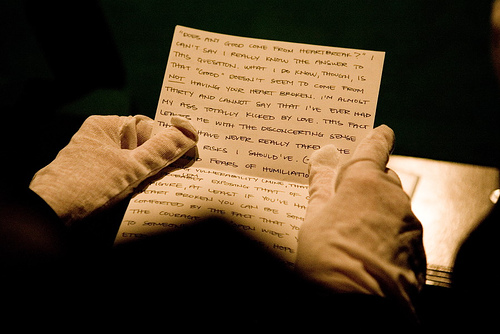 "DOES ANY GOOD COME FROM HEARTBREAK?" I
CAN'T SAY I REALLY KNOW THE ANSWER TO
THIS QUESTION. WHAT I DO KNOW, THOUGH, IS
THAT "GOOD" DOESN'T SEEM TO COME FROM
NOT HAVING YOUR HEART BROKEN. I'M ALMOST
THIRTY AND CANNOT SAY THAT I'VE EVER HAD
MY ASS TOTALLY KICKED BY LOVE. THIS FACT
LEAVES ME WITH THE DISCONCERTING SENSE
THAT HAVE NEVER REALLY TAKEN THE
RISKS I SHOULD'VE.
FEARS OF HUMILIATIO
VULNERABILITY (MINE, THAT
EXPOSING THAT OF
AT LEAST IF YOU'VE HA
BROKEN YOU CAN BE SOM
COMFORTED BY THE FACT THAT YO
THE COURAGE OPEN
TO SOME WIDE"
HOPE